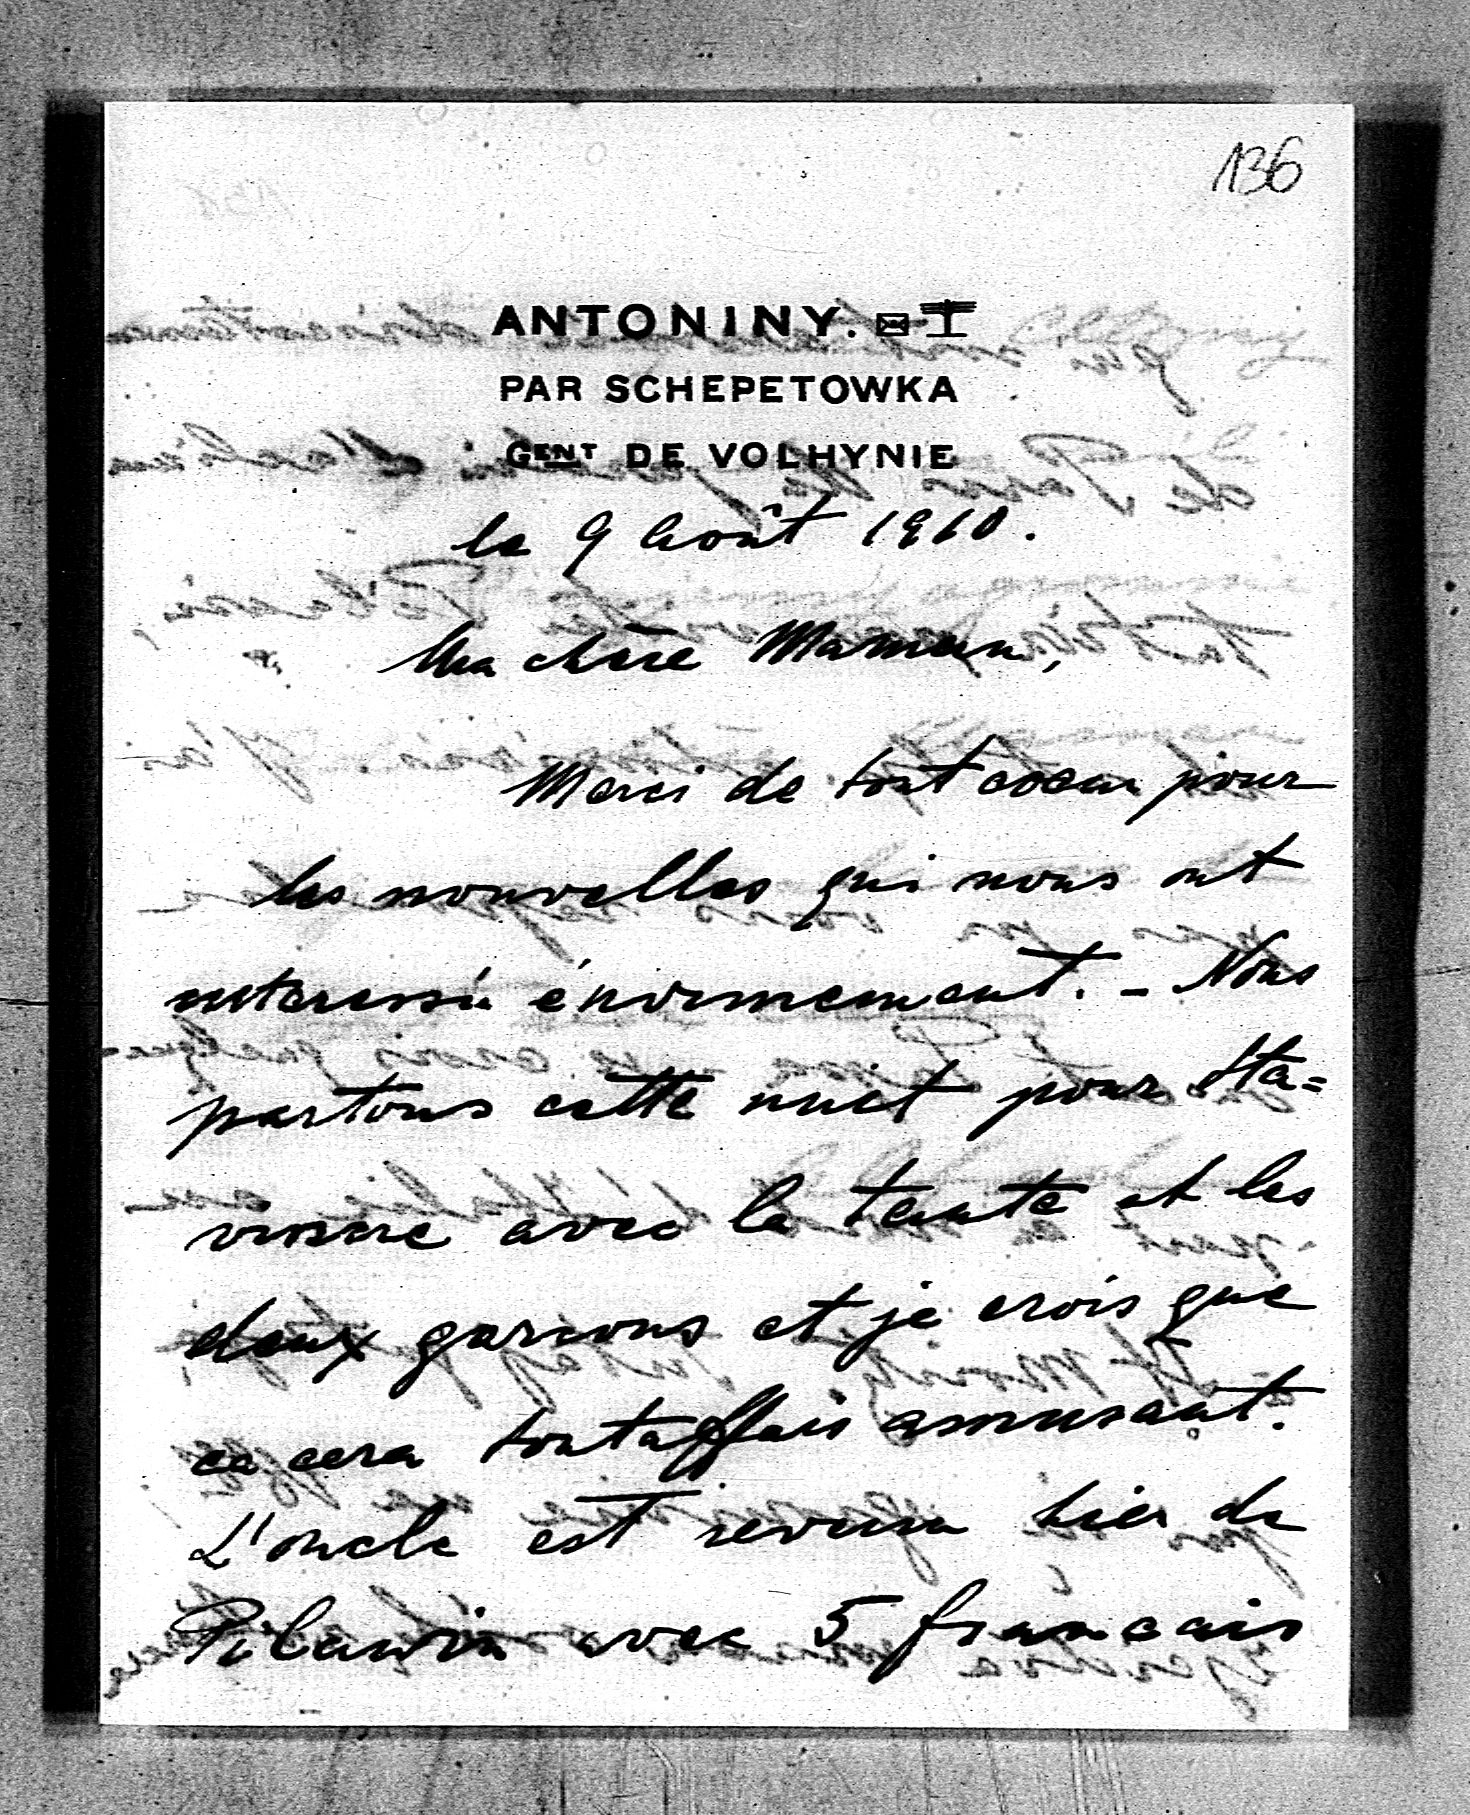 136
ANTONINY.
PAR SCHEPETOWKA
GENT DE VOLHYNIE
le 9 Août 1910.
Ma chère Maman,
Merci de tout coeur pour
les nouvelles qui nous ont
interessé énormement. - Nous
partons cette nuit pour Sta=
vissere avec la tante et les
deux garcons et je crois que
ca cera toutaffais amusant.
L'oncle est revenu hier de
Pilawin avec 5 francais